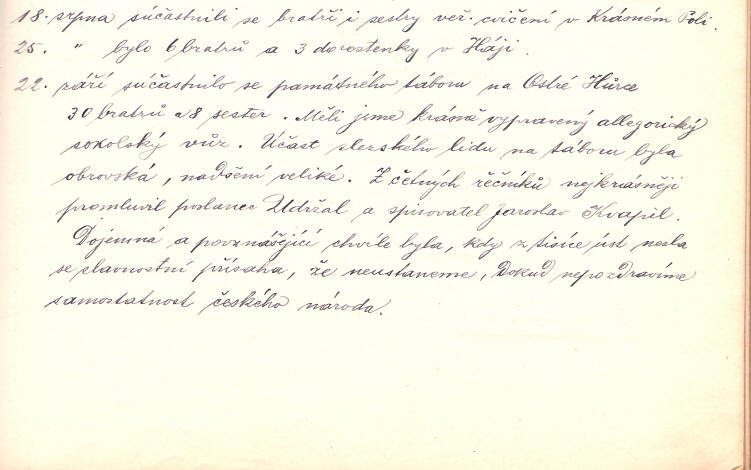 18. srpna súčastnili se bratři i sestry veř. cvičení v Krásném Poli.
25. " bylo 6 bratrů a 3 dorostenky v Háji.
22. září súčastnilo se památného táboru na Ostré Hůrce
30 bratrů a 8 sester. Měli jsme krásně vypravený allegorický
sokolský vůz. Účast slezského lidu na táboru byla
obrovská, nadšení veliké. Z četných řěčníků nejkrásněji
promluvil poslanec Udržal a spisovatel Jaroslav Kvapil.
Dojemná a povznášející chvíle byla, kdy z tisíce úst nesla
se slavnostní přísaha, že neustaneme, dokud nepozdravíme
samostatnost českého národa.